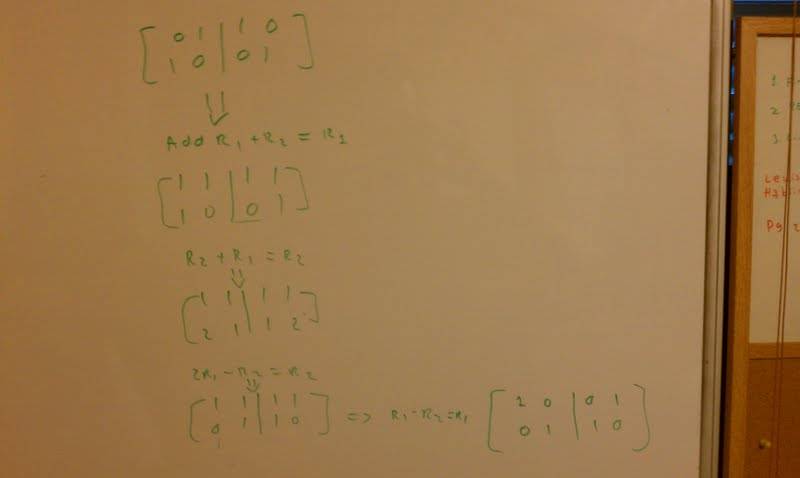 [ 0 1 | 1 0 ]
[ 1 0 | 0 1 ]
⇓
Add R₁ + R₂ = R1
[ 1 1 | 1 1 ]
[ 1 0 | 0 1 ]
R₂ + R₁ = R₂
⇓
[ 1 1 | 1 1 ]
[ 2 1 | 1 2 ]
2R₁ - R₂ = R₂
⇓
[ 1 1 | 1 1 ]
[ 0 1 | 1 0 ]
=> R₁ - R₂ = R₁
[ 1 0 | 0 1 ]
[ 0 1 | 1 0 ]
1.
2.
3.
Pg